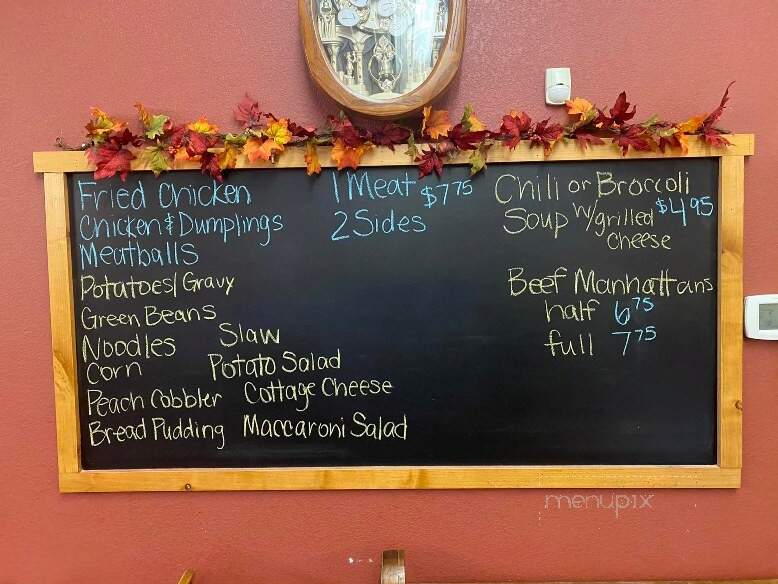 Fried Chicken
Chicken & Dumplings
Meatballs
Potatoes/Gravy
Green Beans
Noodles Slaw
Corn Potato Salad
Peach Cobbler Cottage Cheese
Bread Pudding Maccaroni Salad
1 Meat $7.75
2 Sides
Chili or Broccoli
Soup w/grilled $4.95
Cheese
Beef Manhattans
half 6.75
full 7.75
menupix